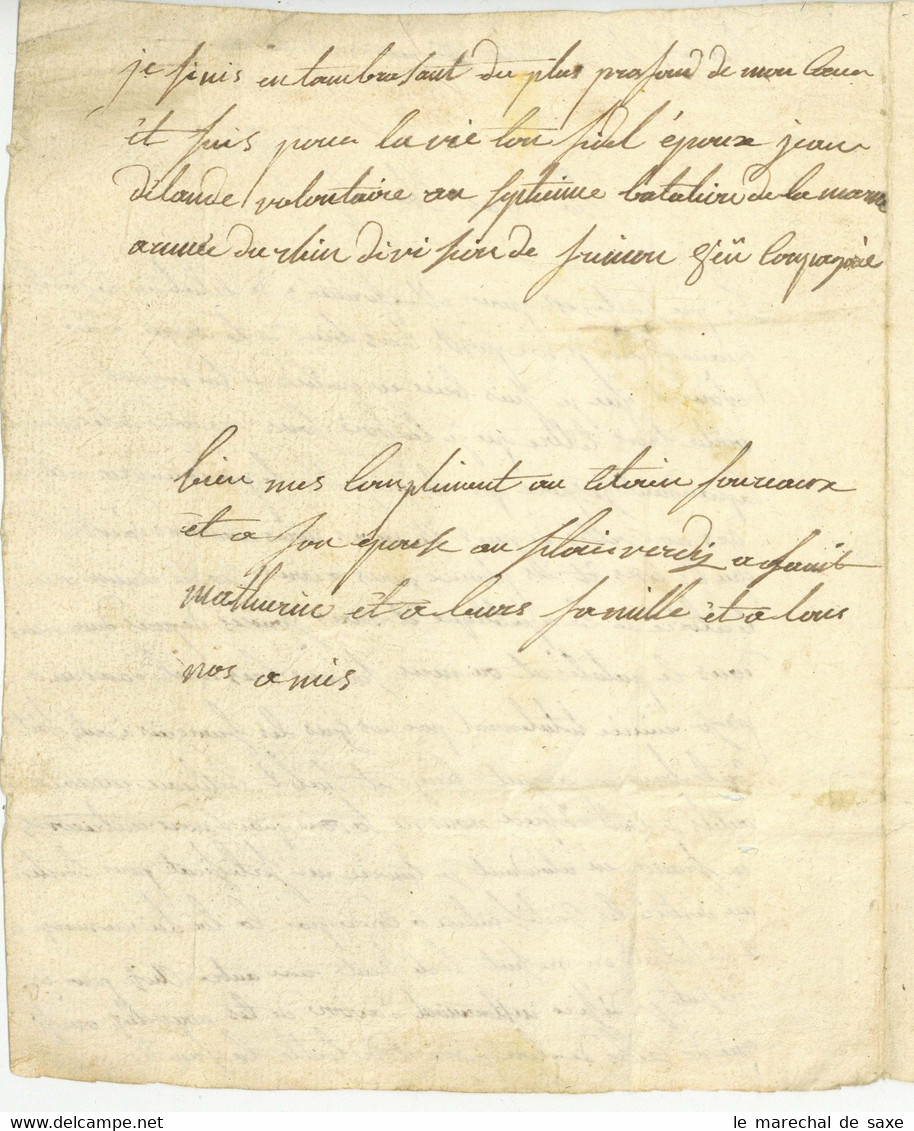 je finis en tambrasant du plus profond de mon coeur
et suis pour la vie ton fidel époux jean
délande volontaire au septieme batalion de la marne
armée du rhin division de 8eu compagnie
bien mes compliment au citoien foureaux
et a son epouse au
mathurin et a leurs famille et a tous
nos amis
le marechal de saxe